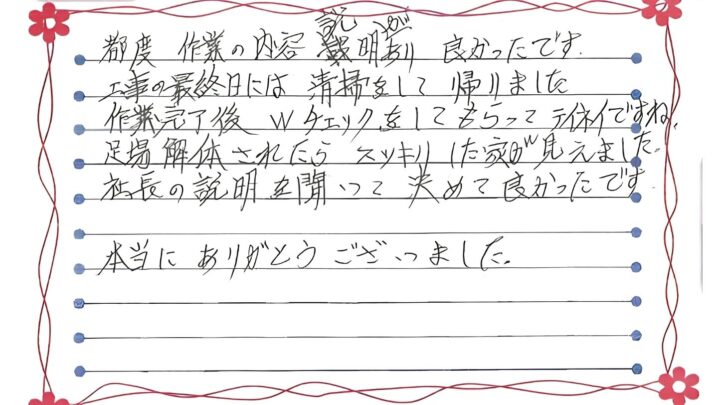 都度 作業の内容 説明があり 良かったです.
工事の最終日には 清掃をして 帰りました
作業完了後 Wチェックをしてもらって テイネイですね.
足場解体されたら スッキリした家が見えました.
社長の説明を聞いて 決めて良かったです.
本当に ありがとうございました.